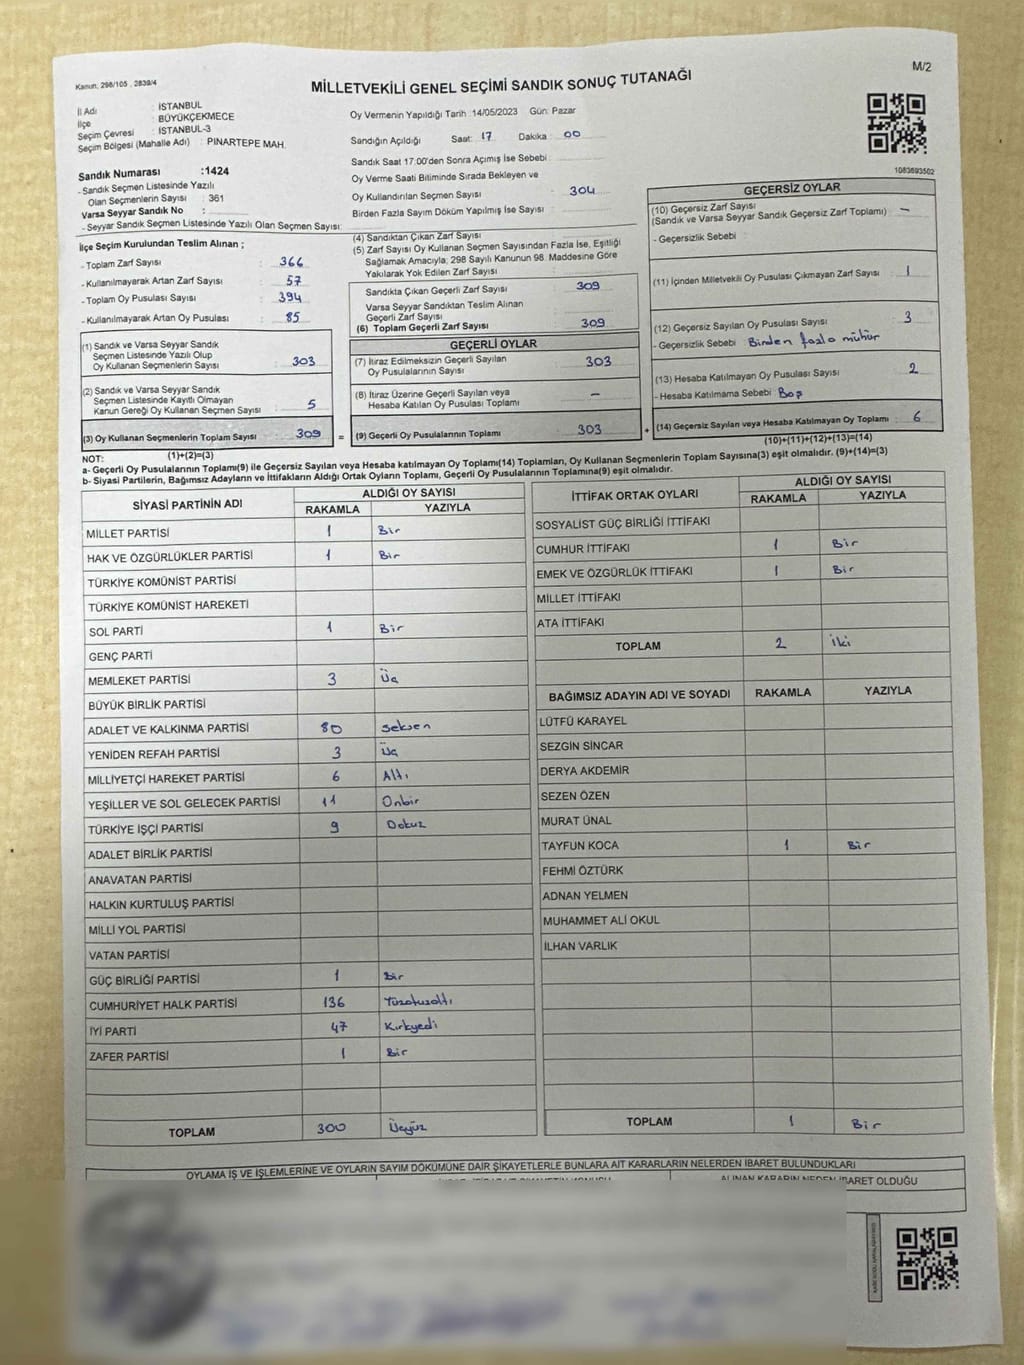 Kanun, 298/105 , 2839/4
MİLLETVEKİLİ GENEL SEÇİMİ SANDIK SONUÇ TUTANAĞI
M/2
İl Adı : İSTANBUL
İlçe : BÜYÜKÇEKMECE
Seçim Çevresi : İSTANBUL-3
Seçim Bölgesi (Mahalle Adı) : PINARTEPE MAH.
Sandık Numarası :1424
- Sandık Seçmen Listesinde Yazılı
Olan Seçmenlerin Sayısı : 361
Varsa Seyyar Sandık No :
- Seyyar Sandık Seçmen Listesinde Yazılı Olan Seçmen Sayısı:
Oy Vermenin Yapıldığı Tarih :14/05/2023 Gün: Pazar
Sandığın Açıldığı Saat: 17 Dakika : 00
Sandık Saat 17:00'den Sonra Açımış İse Sebebi :
Oy Verme Saati Bitiminde Sırada Bekleyen ve
Oy Kullandırılan Seçmen Sayısı : 304
Birden Fazla Sayım Döküm Yapılmış İse Sayısı :
1083693502
İlçe Seçim Kurulundan Teslim Alınan ;
- Toplam Zarf Sayısı : 366
- Kullanılmayarak Artan Zarf Sayısı : 57
- Toplam Oy Pusulası Sayısı : 394
- Kullanılmayarak Artan Oy Pusulası : 85
(1) Sandık ve Varsa Seyyar Sandık
Seçmen Listesinde Yazılı Olup
Oy Kullanan Seçmenlerin Sayısı : 303
(2) Sandık ve Varsa Seyyar Sandık
Seçmen Listesinde Kayıtlı Olmayan
Kanun Gereği Oy Kullanan Seçmen Sayısı : 5
(3) Oy Kullanan Seçmenlerin Toplam Sayısı : 309 =
(4) Sandıktan Çıkan Zarf Sayısı :
(5) Zarf Sayısı Oy Kullanan Seçmen Sayısından Fazla İse, Eşitliği
Sağlamak Amacıyla; 298 Sayılı Kanunun 98. Maddesine Göre
Yakılarak Yok Edilen Zarf Sayısı :
Sandıkta Çıkan Geçerli Zarf Sayısı : 309
Varsa Seyyar Sandıktan Teslim Alınan
Geçerli Zarf Sayısı :
(6) Toplam Geçerli Zarf Sayısı : 309
GEÇERLİ OYLAR
(7) İtiraz Edilmeksizin Geçerli Sayılan
Oy Pusulalarının Sayısı : 303
(8) İtiraz Üzerine Geçerli Sayılan veya
Hesaba Katılan Oy Pusulası Toplamı : –
(9) Geçerli Oy Pusulalarının Toplamı : 303 +
GEÇERSİZ OYLAR
(10) Geçersiz Zarf Sayısı : –
(Sandık ve Varsa Seyyar Sandık Geçersiz Zarf Toplamı)
- Geçersizlik Sebebi :
(11) İçinden Milletvekili Oy Pusulası Çıkmayan Zarf Sayısı : 1
(12) Geçersiz Sayılan Oy Pusulası Sayısı : 3
- Geçersizlik Sebebi : Birden fazla mühür
(13) Hesaba Katılmayan Oy Pusulası Sayısı : 2
- Hesaba Katılmama Sebebi : Boş
(14) Geçersiz Sayılan veya Hesaba Katılmayan Oy Toplamı : 6
NOT: (1)+(2)=(3)
(10)+(11)+(12)+(13)=(14)
a- Geçerli Oy Pusulalarının Toplamı(9) ile Geçersiz Sayılan veya Hesaba katılmayan Oy Toplamı(14) Toplamları, Oy Kullanan Seçmenlerin Toplam Sayısına(3) eşit olmalıdır. (9)+(14)=(3)
b- Siyasi Partilerin, Bağımsız Adayların ve İttifakların Aldığı Ortak Oyların Toplamı, Geçerli Oy Pusulalarının Toplamına(9) eşit olmalıdır.
SİYASİ PARTİNİN ADI ALDIĞI OY SAYISI
RAKAMLA YAZIYLA
MİLLET PARTİSİ 1 Bir
HAK VE ÖZGÜRLÜKLER PARTİSİ 1 Bir
TÜRKİYE KOMÜNİST PARTİSİ
TÜRKİYE KOMÜNİST HAREKETİ
SOL PARTİ 1 Bir
GENÇ PARTİ
MEMLEKET PARTİSİ 3 Üç
BÜYÜK BİRLİK PARTİSİ
ADALET VE KALKINMA PARTİSİ 80 Seksen
YENİDEN REFAH PARTİSİ 3 Üç
MİLLİYETÇİ HAREKET PARTİSİ 6 Altı
YEŞİLLER VE SOL GELECEK PARTİSİ 11 Onbir
TÜRKİYE İŞÇİ PARTİSİ 9 Dokuz
ADALET BİRLİK PARTİSİ
ANAVATAN PARTİSİ
HALKIN KURTULUŞ PARTİSİ
MİLLİ YOL PARTİSİ
VATAN PARTİSİ
GÜÇ BİRLİĞİ PARTİSİ 1 Bir
CUMHURİYET HALK PARTİSİ 136 Yüzotuzaltı
İYİ PARTİ 47 Kırkyedi
ZAFER PARTİSİ 1 Bir
TOPLAM 300 Üçyüz
İTTİFAK ORTAK OYLARI ALDIĞI OY SAYISI
RAKAMLA YAZIYLA
SOSYALİST GÜÇ BİRLİĞİ İTTİFAKI
CUMHUR İTTİFAKI 1 Bir
EMEK VE ÖZGÜRLÜK İTTİFAKI 1 Bir
MİLLET İTTİFAKI
ATA İTTİFAKI
TOPLAM 2 İki
BAĞIMSIZ ADAYIN ADI VE SOYADI RAKAMLA YAZIYLA
LÜTFÜ KARAYEL
SEZGİN SİNCAR
DERYA AKDEMİR
SEZEN ÖZEN
MURAT ÜNAL
TAYFUN KOCA 1 Bir
FEHMİ ÖZTÜRK
ADNAN YELMEN
MUHAMMET ALİ OKUL
İLHAN VARLIK
TOPLAM 1 Bir
OYLAMA İŞ VE İŞLEMLERİNE VE OYLARIN SAYIM DÖKÜMÜNE DAİR ŞİKAYETLERLE BUNLARA AİT KARARLARIN NELERDEN İBARET BULUNDUKLARI
ALINAN KARARIN NEDEN İBARET OLDUĞU